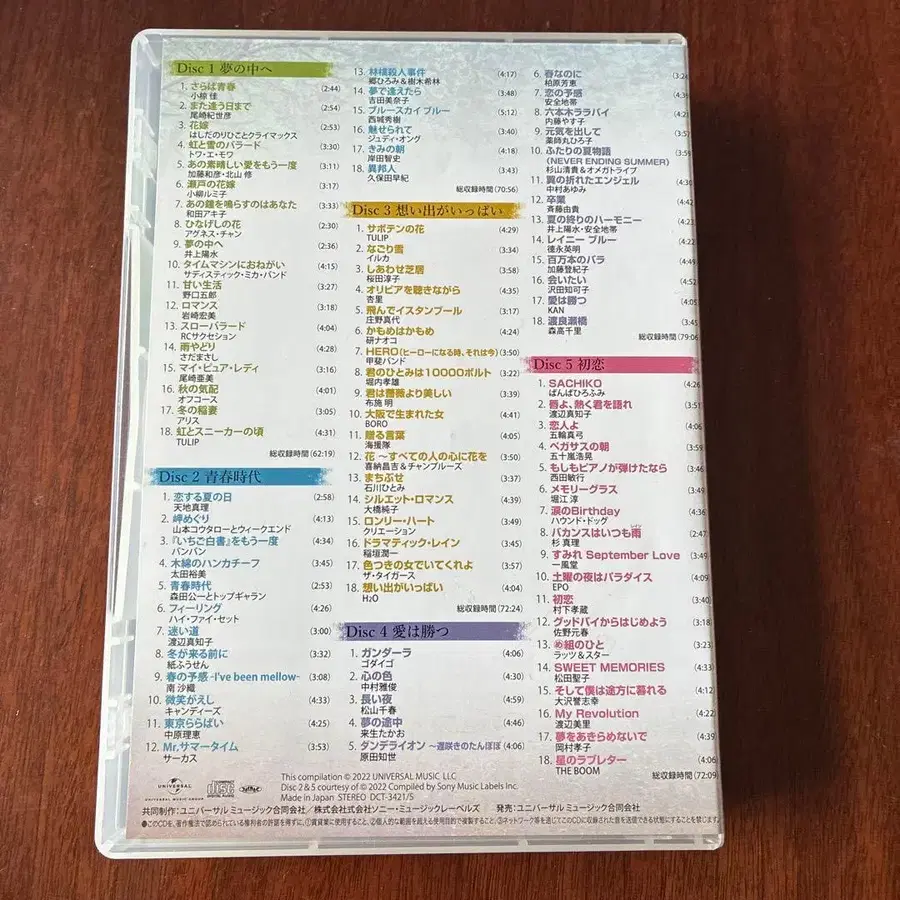 Disc 1 夢の中へ
1. さらば青春 (2:44)
小椋 佳
2. また逢う日まで (2:54)
尾崎紀世彦
3. 花嫁 (2:53)
はしだのりひことクライマックス
4. 虹と雪のバラード (3:30)
トワ・エ・モワ
5. あの素晴しい愛をもう一度 (3:11)
加藤和彦・北山 修
6. 瀬戸の花嫁 (3:17)
小柳ルミ子
7. あの鐘を鳴らすのはあなた (3:33)
和田アキ子
8. ひなげしの花 (2:30)
アグネス・チャン
9. 夢の中へ (2:36)
井上陽水
10. タイムマシンにおねがい (4:15)
サディスティック・ミカ・バンド
11. 甘い生活 (3:27)
野口五郎
12. ロマンス (3:18)
岩崎宏美
13. スローバラード (4:04)
RCサクセション
14. 雨やどり (4:28)
さだまさし
15. マイ・ピュア・レディ (3:16)
尾崎亜美
16. 秋の気配 (4:01)
オフコース
17. 冬の稲妻 (3:05)
アリス
18. 虹とスニーカーの頃 (4:31)
TULIP
総収録時間 (62:19)
Disc 2 青春時代
1. 恋する夏の日 (2:58)
天地真理
2. 岬めぐり (4:13)
山本コウタローとウィークエンド
3. 『いちご白書』をもう一度 (4:34)
バンバン
4. 木綿のハンカチーフ (3:45)
太田裕美
5. 青春時代 (2:53)
森田公一とトップギャラン
6. フィーリング (4:26)
ハイ・ファイ・セット
7. 迷い道 (3:00)
渡辺真知子
8. 冬が来る前に (3:32)
紙ふうせん
9. 春の予感 -I've been mellow- (3:08)
南 沙織
10. 微笑がえし (4:33)
キャンディーズ
11. 東京ららばい (4:25)
中原理恵
12. Mr.サマータイム (3:53)
サーカス
13. 林檎殺人事件 (4:17)
郷ひろみ&樹木希林
14. 夢で逢えたら (3:48)
吉田美奈子
15. ブルースカイ ブルー (5:12)
西城秀樹
16. 魅せられて (3:40)
ジュディ・オング
17. きみの朝 (4:18)
岸田智史
18. 異邦人 (3:43)
久保田早紀
総収録時間 (70:56)
Disc 3 想い出がいっぱい
1. サボテンの花 (4:29)
TULIP
2. なごり雪 (3:34)
イルカ
3. しあわせ芝居 (3:58)
桜田淳子
4. オリビアを聴きながら (4:35)
杏里
5. 飛んでイスタンブール (3:17)
庄野真代
6. かもめはかもめ (4:24)
研ナオコ
7. HERO(ヒーローになる時、それは今) (3:50)
甲斐バンド
8. 君のひとみは10000ボルト (3:22)
堀内孝雄
9. 君は薔薇より美しい (3:39)
布施 明
10. 大阪で生まれた女 (4:41)
BORO
11. 贈る言葉 (4:05)
海援隊
12. 花 ~すべての人の心に花を (3:50)
喜納昌吉&チャンプルーズ
13. まちぶせ (3:37)
石川ひとみ
14. シルエット・ロマンス (4:39)
大橋純子
15. ロンリー・ハート (3:49)
クリエーション
16. ドラマティック・レイン (3:45)
稲垣潤一
17. 色つきの女でいてくれよ (3:57)
ザ・タイガース
18. 想い出がいっぱい (4:04)
H₂O
総収録時間 (72:24)
Disc 4 愛は勝つ
1. ガンダーラ (4:06)
ゴダイゴ
2. 心の色 (4:30)
中村雅俊
3. 長い夜 (4:59)
松山千春
4. 夢の途中 (4:46)
来生たかお
5. ダンデライオン ~遅咲きのたんぽぽ (4:06)
原田知世
6. 春なのに (3:24
柏原芳恵
7. 恋の予感
安全地帯
8. 六本木ララバイ
内藤やす子
9. 元気を出して
薬師丸ひろ子
10. ふたりの夏物語
(NEVER ENDING SUMMER)
杉山清貴&オメガトライブ
11. 翼の折れたエンジェル
中村あゆみ
12. 卒業 (4:42
斉藤由貴
13. 夏の終りのハーモニー
井上陽水・安全地帯
14. レイニー ブルー
徳永英明
15. 百万本のバラ (4:49)
加藤登紀子
16. 会いたい
沢田知可子
17. 愛は勝つ (4:05
KAN
18. 渡良瀬橋 (3:45
森高千里
総収録時間 (79:06)
Disc 5 初恋
1. SACHIKO (4:26
ばんばひろふみ
2. 唇よ、熱く君を語れ (3:51
渡辺真知子
3. 恋人よ
五輪真弓
4. ペガサスの朝 (3:59
五十嵐浩晃
5. もしもピアノが弾けたなら (3:46)
西田敏行
6. メモリーグラス (3:58)
堀江 淳
7. 涙のBirthday (4:36)
ハウンド・ドッグ
8. バカンスはいつも雨 (2:47)
杉 真理
9. すみれ September Love (4:09)
一風堂
10. 土曜の夜はパラダイス (4:09)
EPO
11. 初恋 (3:40)
村下孝蔵
12. グッドバイからはじめよう (3:18)
佐野元春
13. め組のひと (3:23)
ラッツ&スター
14. SWEET MEMORIES (4:33)
松田聖子
15. そして僕は途方に暮れる (4:12)
大沢誉志幸
16. My Revolution (4:22)
渡辺美里
17. 夢をあきらめないで (4:39)
岡村孝子
18. 星のラブレター (4:06)
THE BOOM
総収録時間 (72:09)
UNIVERSAL
UNIVERSAL MUSIC GROUP
COMPACT disc DIGITAL AUDIO
This compilation ℗ 2022 UNIVERSAL MUSIC LLC
Disc 2 & 5 courtesy of ℗ 2022 Compiled by Sony Music Labels Inc.
Made in Japan STEREO DCT-3421/5
共同制作:ユニバーサル ミュージック合同会社/株式会社ソニー・ミュージックレーベルズ 発売:ユニバーサル ミュージック合同会社
●このCDを、著作権法で認められている権利者の許諾を得ずに、①賃貸業に使用すること、②個人的な範囲を超える使用目的で複製すること、③ネットワーク等を通じてこのCDに収録された音を送信できる状態にすることを禁じます。